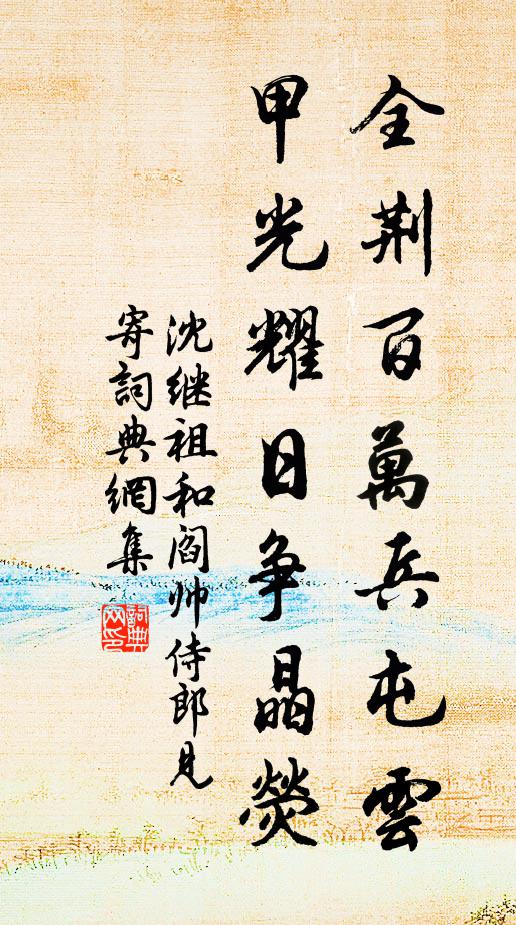 全荆百萬兵屯雲
甲光耀日争晶熒
沈继祖和阎帅侍郎见
寄詞典網集